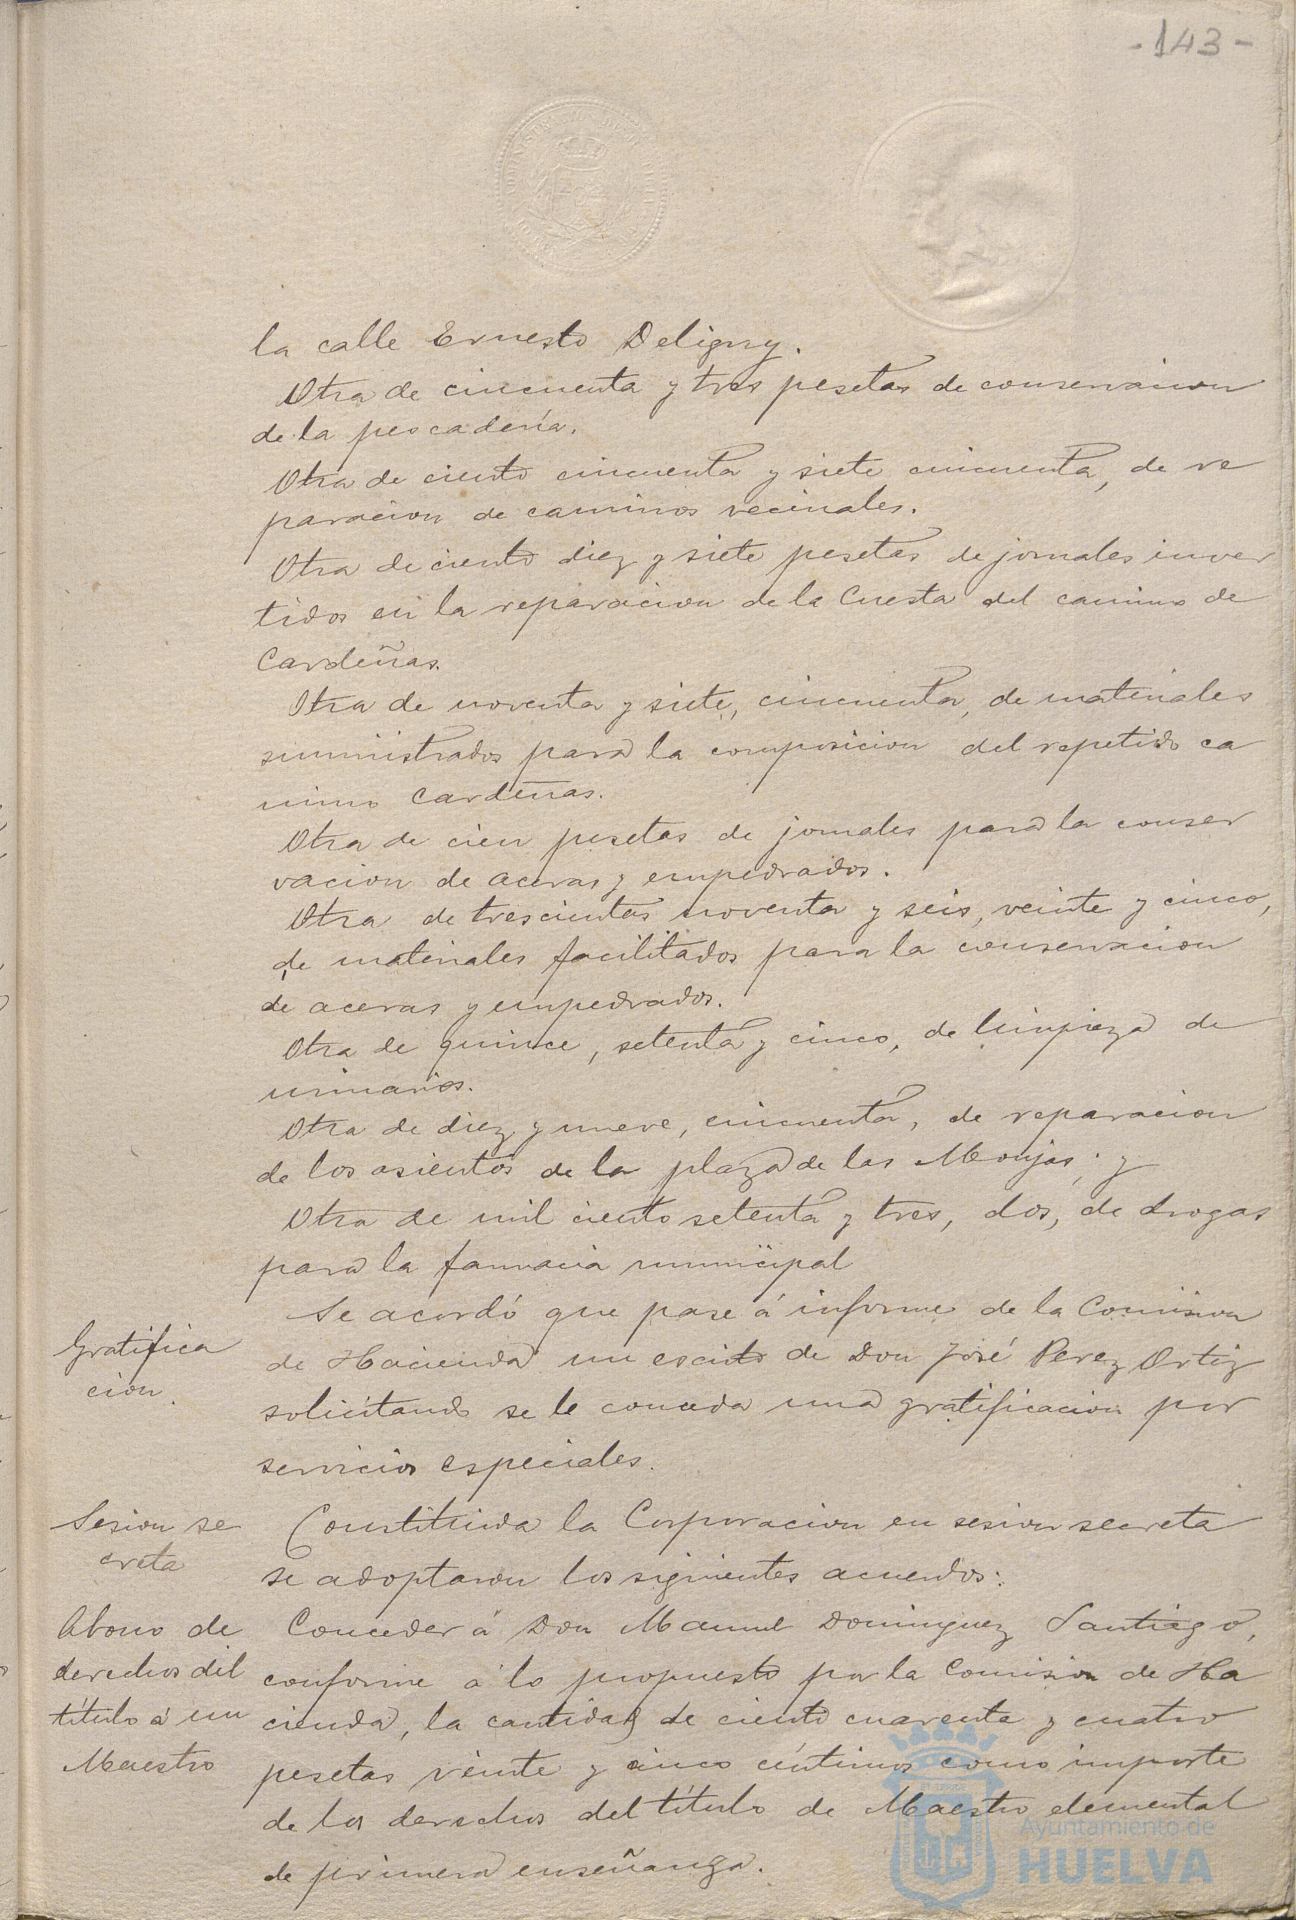 -143-
la calle Ernesto Deligny.
Otra de cincuenta y tres pesetas de conservacion
de la pescadería.
Otra de ciento cincuenta y siete cincuenta, de re
paracion de caminos vecinales.
Otra de ciento diez y siete pesetas de jornales inver
tidos en la reparacion de la Cuesta del camino de
Cardeñas.
Otra de noventa y siete, cincuenta, de materiales
suministrados para la composicion del repetido ca
mino Cardeñas.
Otra de cien pesetas de jornales para la conser
vacion de aceras y empedrados.
Otra de trescientas noventa y seis, veinte y cinco,
de materiales facilitados para la conservacion
de aceras y empedrados.
Otra de quince, setenta y cinco, de limpieza de
urinarios.
Otra de diez y nueve, cincuenta, de reparacion
de los asientos de la plaza de las Monjas; y
Otra de mil ciento setenta y tres, dos, de drogas
para la farmacia municipal
Gratifica
cion.
Se acordó que pase á informe de la Comision
de Hacienda un escrito de Don José Perez Ortiz
solicitando se le conceda una gratificacion por
servicios especiales.
Sesion se
creta
Constituida la Corporacion en sesion secreta
se adoptaron los siguientes acuerdos:
Abono de
derechos del
título á un
Maestro
Conceder á Don Manuel Dominguez Santiago,
conforme á lo propuesto por la Comision de Ha
cienda, la cantidad de ciento cuarenta y cuatro
pesetas veinte y cinco céntimos como importe
de los derechos del título de Maestro elemental
de primera enseñanza.
Ayuntamiento de
HUELVA